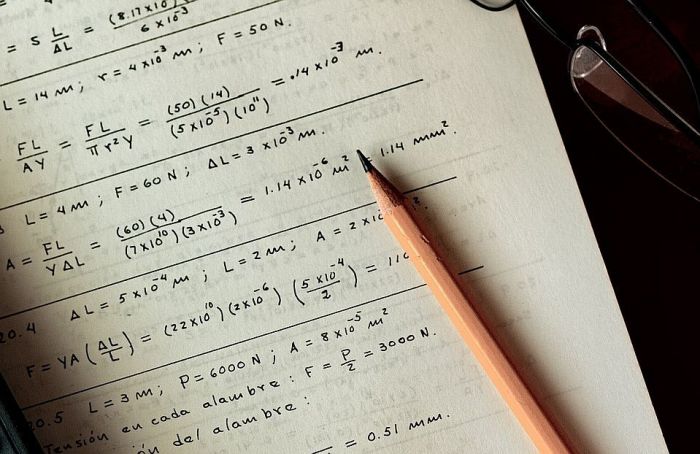 = 5 L/ΔL = (8.17×10 )/(6×10⁻³)
L = 14 m; r = 4×10⁻³ m; F = 50 N.
FL/AY = FL/πr²Y = (50)(14)/(5×10⁻⁵)(10¹¹) = .14×10⁻³ m.
3 L = 4 m; F = 60 N; ΔL = 3×10⁻³ m.
A = FL/YΔL = (60)(4)/(7×10¹⁰)(3×10⁻³) = 1.14×10⁻⁶ m² = 1.14 mm².
20.4 ΔL = 5×10⁻⁴ m; L = 2 m; A = 2×10
F = YA(ΔL/L) = (22×10¹⁰)(2×10⁻⁶)(5×10⁻⁴/2) = 110
20.5 L = 3 m; P = 6000 N; A = 8×10⁻⁵ m²
Tensión en cada alambre: F = P/2 = 3000 N.
del alambre:
= 0.51 mm.